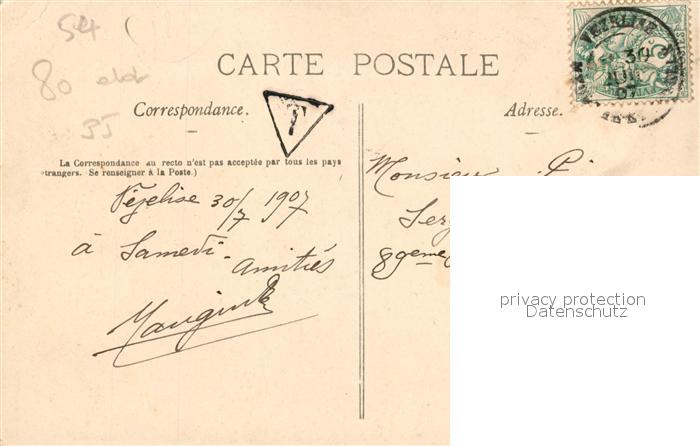 54
80
35
CARTE POSTALE
Correspondance.
T
Adresse.
VEZELISE
30
07
La Correspondance au recto n'est pas acceptée par tous les pays
etrangers. Se renseigner à la Poste.)
Vézelise 30/7 1907
à Samedi.
Amitiés
Monsieur P.
89eme
privacy protection
Datenschutz